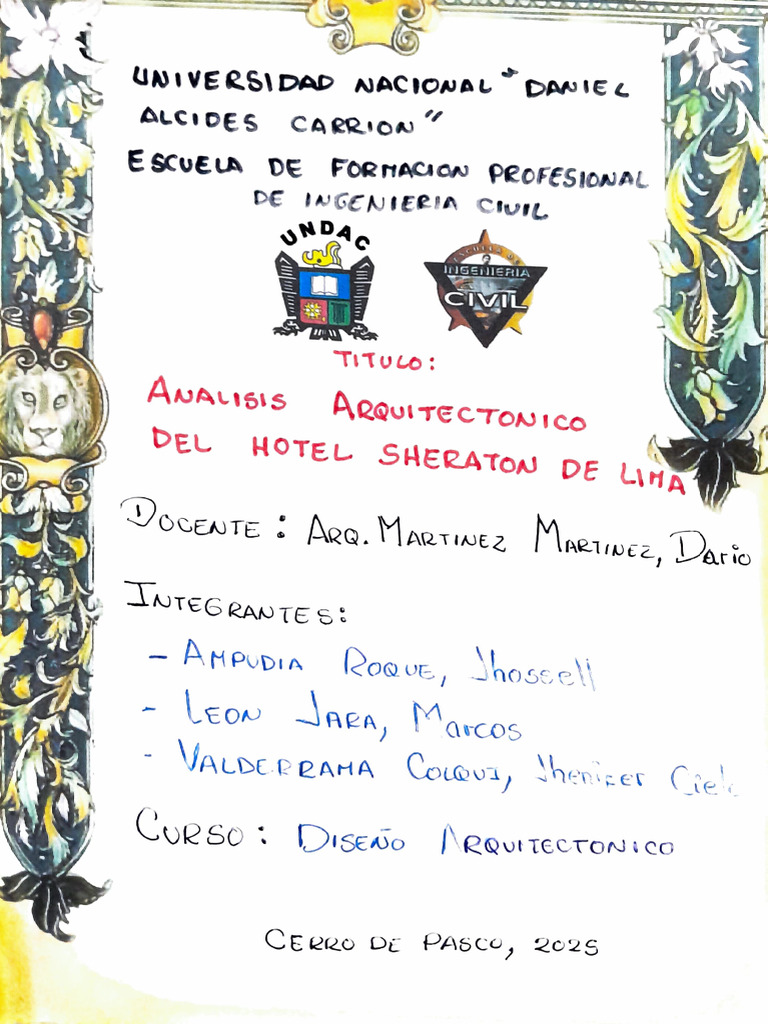 UNIVERSIDAD NACIONAL "DANIEL
ALCIDES CARRION"
ESCUELA DE FORMACION PROFESIONAL
DE INGENIERIA CIVIL
UNDAC
ESCUELA DE
INGENIERIA
CIVIL
TITULO:
ANALISIS ARQUITECTONICO
DEL HOTEL SHERATON DE LIMA
DOCENTE: ARQ. MARTINEZ MARTINEZ, Dario
INTEGRANTES:
- AMPUDIA ROQUE, Jhossell
- LEON JARA, Marcos
- VALDERRAMA COLQUI, Jhenifer
CURSO: DISEÑO ARQUITECTONICO
CERRO DE PASCO, 2025